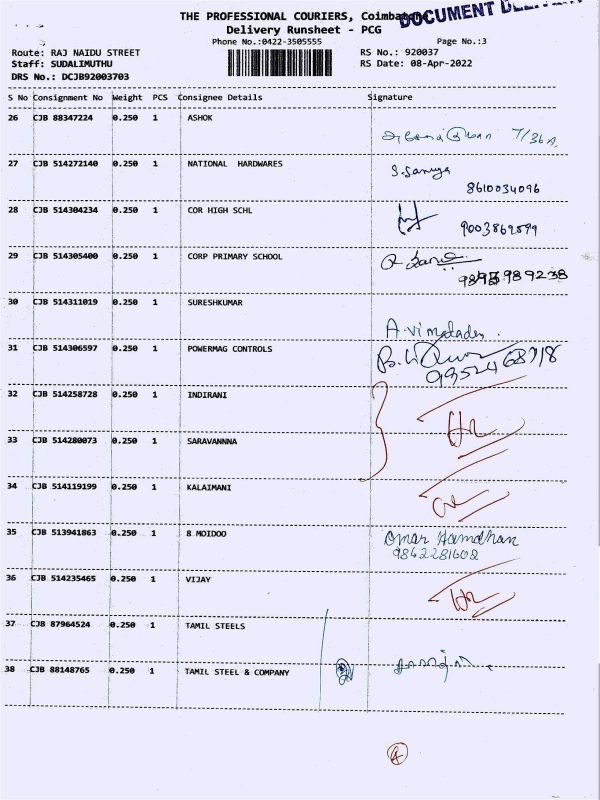 THE PROFESSIONAL COURIERS, Coimbatore
DOCUMENT
Delivery Runsheet - PCG
Phone No.:0422-3505555
Page No.:3
Route: RAJ NAIDU STREET
RS No.: 920037
Staff: SUDALIMUTHU
RS Date: 08-Apr-2022
DRS No.: DCJB92003703
S No Consignment No Weight PCS Consignee Details Signature
26 CJB 88347224 0.250 1 ASHOK
27 CJB 514272140 0.250 1 NATIONAL HARDWARES
8610034096
28 CJB 514304234 0.250 1 COR HIGH SCHL
29 CJB 514305400 0.250 1 CORP PRIMARY SCHOOL
30 CJB 514311019 0.250 1 SURESHKUMAR
31 CJB 514306597 0.250 1 POWERMAG CONTROLS
32 CJB 514258728 0.250 1 INDIRANI
33 CJB 514280073 0.250 1 SARAVANNNA
34 CJB 514119199 0.250 1 KALAIMANI
35 CJB 513941863 0.250 1 8 MOIDOO
Omar Hamdhan
9842281602
36 CJB 514235465 0.250 1 VIJAY
37 CJB 87964524 0.250 1 TAMIL STEELS
38 CJB 88148765 0.250 1 TAMIL STEEL & COMPANY